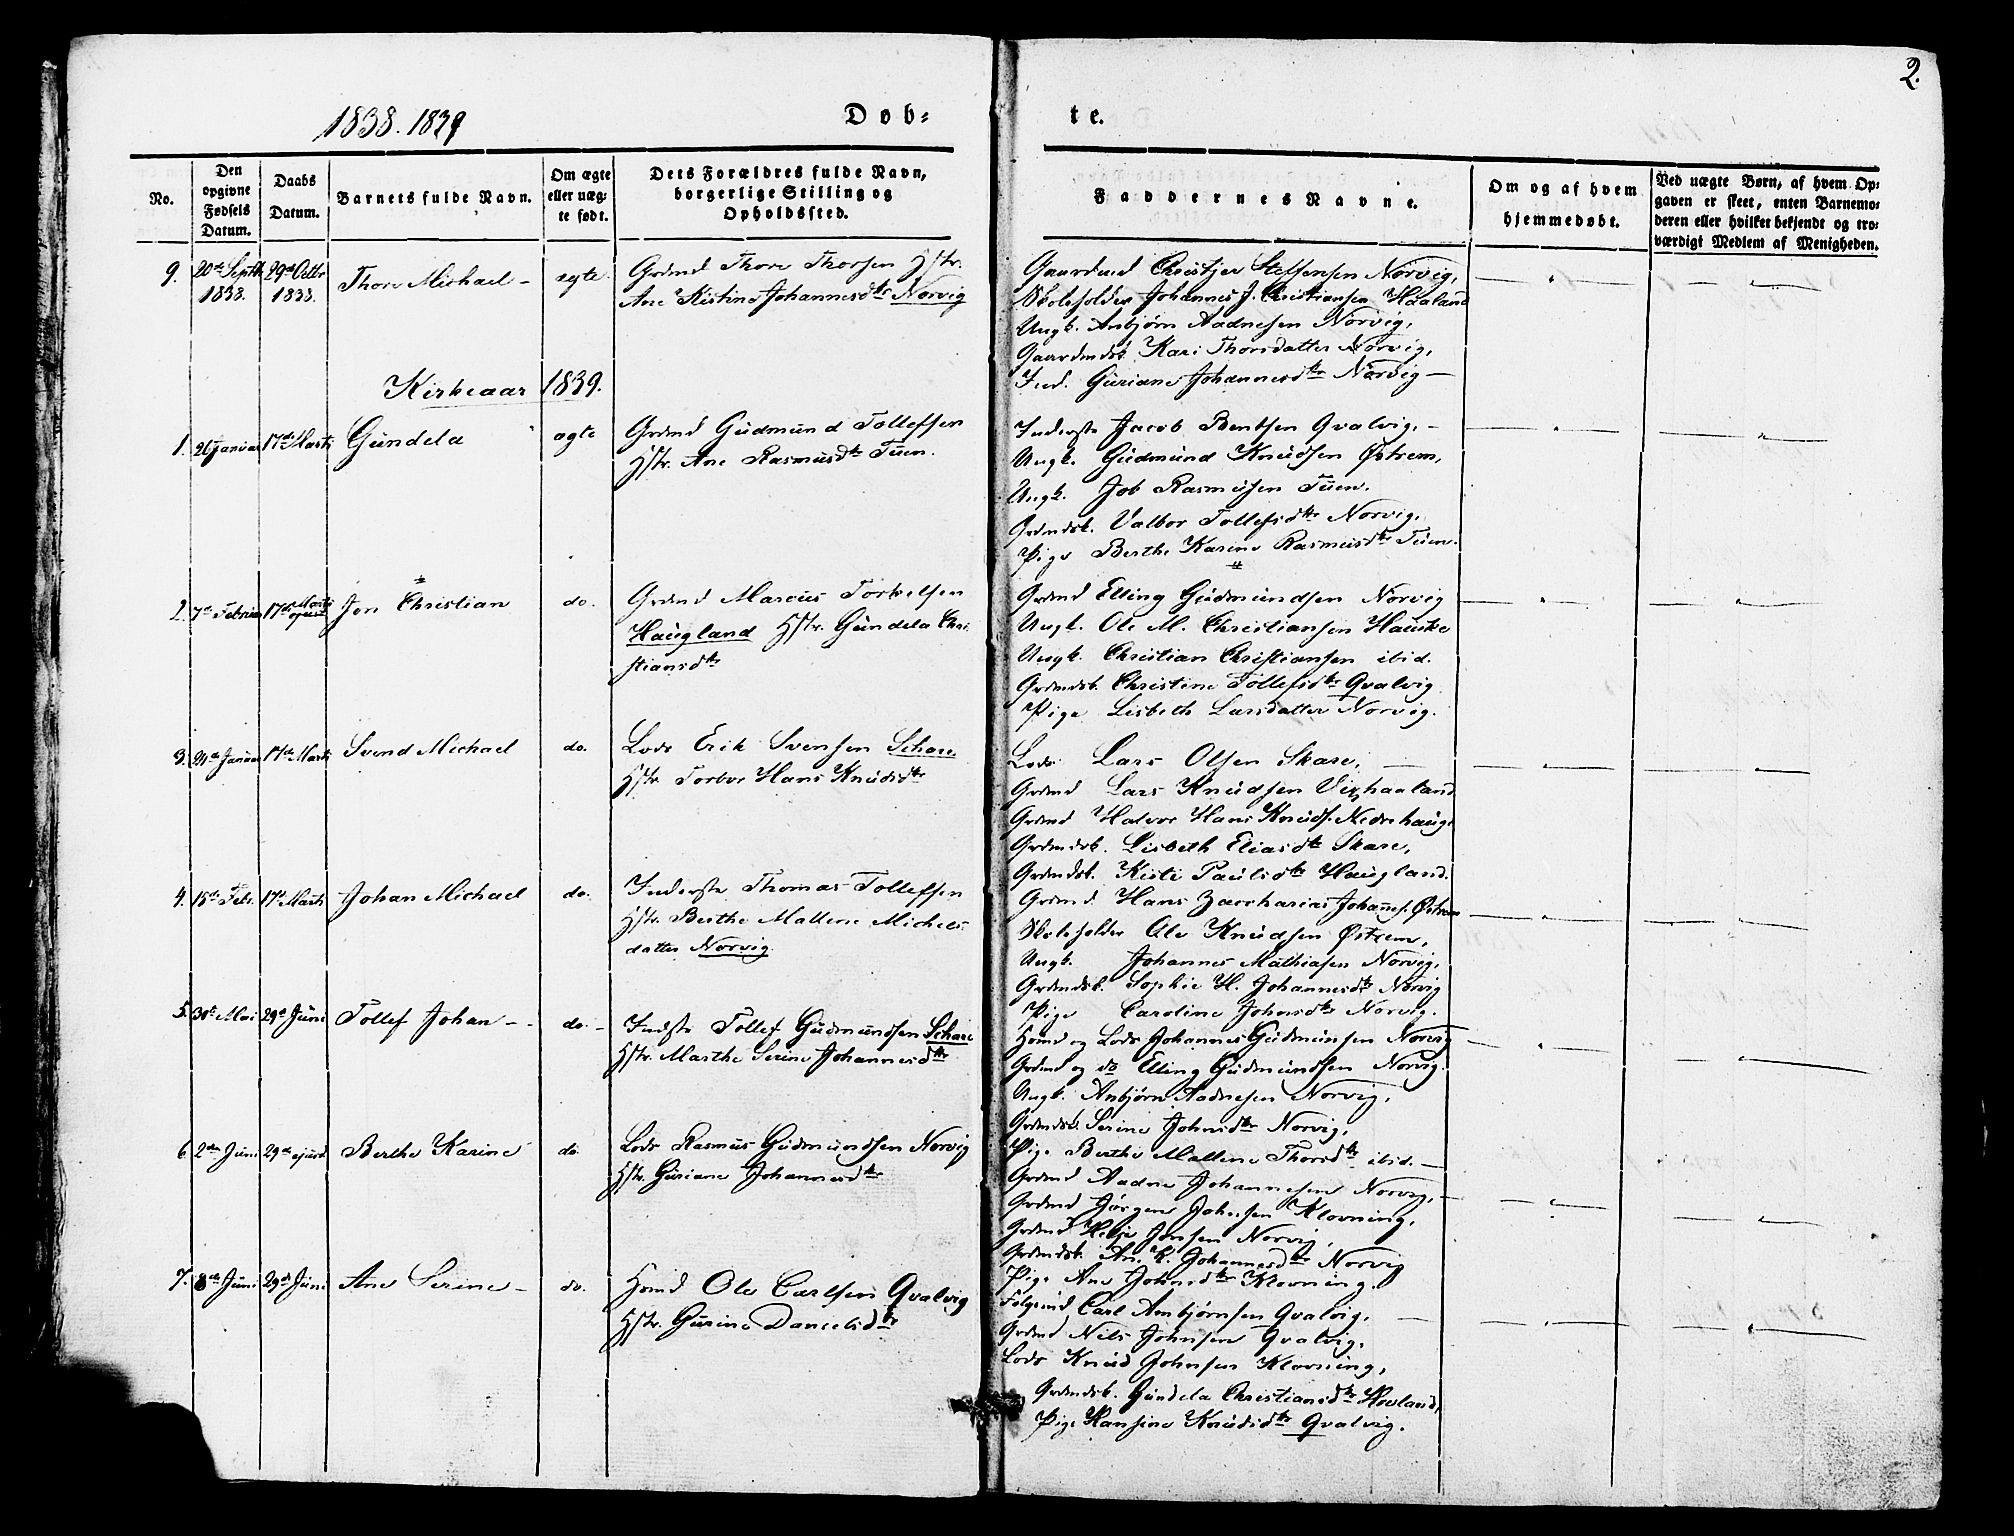 2.
1838. 1839
Døb-
te.
No.
Den opgivne Fødsels Datum.
Daabs Datum.
Barnets fulde Navn.
Om ægte eller uægte født.
Dets Forældres fulde Navn, borgerlige Stilling og Opholdssted.
Faddernes Navne.
Om og af hvem hjemmedøbt.
Ved uægte Børn, af hvem Opgaven er skeet, enten Barnemoderen eller hvilket bekjendt og troværdigt Medlem af Menigheden.
9. 20de Septbr 1838. 29de Octbr 1838. Thore Michael - ægte
Grdmd Thore Thorsen Hstr.
Ane Kistine Johannesdtr Norvig
Gaardmd Christjer Steffensen Norvig,
Skoleholder Johannes J. Christiansen Haaland
Ungk. Anbjørn Aadnesen Norvig,
Gaardmdsk. Kari Thorsdatter Norvig,
Ind. Guriane Johannesdtr Norvig -
Kirkeaar 1839.
1. 26 Januar 17de Marts Gundela ægte
Grdmd Gudmund Tollefsen
Hstr. Ane Rasmusdtr Tuen.
Inderste Jacob Bentsen Qvalvig, -
Ungk. Gudmund Knudsen Østrem,
Ungk. Job Rasmusen Tuen.
Grdmdsk. Valbor Tollefsdtr Norvig,
Pige Berthe Karine Rasmusdtr Tuen.
2. 7de Februar 17de Marts ejusd Jon Christian do.
Grdmd Marcus Torkelsen
Haugland Hstr. Gundela Chri-
stiansdtr
Grdmd Elling Gudmundsen Norvig
Ungk. Ole M. Christiansen Hauske
Ungk. Christian Christiansen ibid.
Grdmdsk. Christine Tollefsdtr Qvalvig
Pige Lisbeth Larsdatter Norvig.
3. 21de Januar 17de Marts Svend Michael do.
Lods Erik Svensen Schare
Hstr Torbor Hans Knudsdtr
Lods Lars Olsen Skare,
Grdmd Lars Knudsen Vikhaaland
Grdmd Halvor Hans Knuds. Nedrehauge
Grdmdsk. Lisbeth Eliasdtr Skare,
Grdmdsk. Kisti Paulsdtr Haugland.
4. 15de Febr. 17de Marts Johan Michael do.
Inderste Thomas Tollefsen
Hstr. Berthe Mallene Michels-
datter Norvig.
Grdmd Hans Zaccharias Johannes. Østrem
Skoleholder Ole Knudsen Østrem,
Ungk. Johannes Mathiasen Norvig,
Grdmdsk. Sophie H. Johannesdtr Norvig
Pige Caroline Johnsdtr Norvig.
5. 30te Mai 29de Juni Tollef Johan - - do. -
Indste Tollef Gudmundsen Schare
Hstr. Marthe Serine Johannesdtr
Hsmd og Lods Johannes Gudmunsen Norvig
Grdmd og do Elling Gudmundsen Norvig.
Ungk. Anbjørn Aadnesen Norvig,
Grdmdsk. Serine Johnsdtr Norvig,
Pige Berthe Mallene Thorsdtr ibid. -
6. 2den Juni 29de ejusd Berthe Karine do.
Lods Rasmus Gudmundsen Norvig
Hstr. Guriane Johannesdtr
Grdmd Aadne Johannesen Norvig, -
Grdmd Jørgen Johnsen Klovning,
Grdmd Helje Jensen Norvig,
Grdmdsk. Ane K. Johannesdtr Norvig
Pige Ane Johnsdtr Klovning.
7. 8de Juni 29de Juni Ane Serine - do.
Hsmd Ole Carlsen Qvalvig
Hstr. Gurine Danielsdtr
Folgemd Carl Anbjørnsen Qvalvig,
Grdmd Nils Johnsen Qvalvig,
Lods Knud Johnsen Klovning,
Grdmdsk. Gundela Christiansdtr Hovland,
Pige Hansine Knudsdtr Qvalvig.